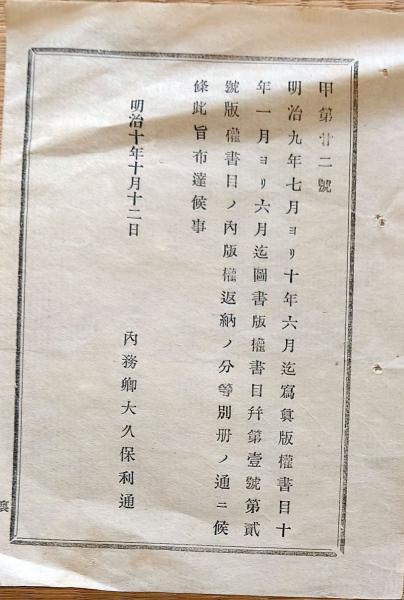 甲第廿二號
明治九年七月ヨリ十年六月迄寫眞版權書目十
年一月ヨリ六月迄圖書版權書目幷第壹號第貳
號版權書目ノ內版權返納ノ分等別册ノ通ニ候
條此旨布達候事
明治十年十月十二日
內務卿大久保利通
裏